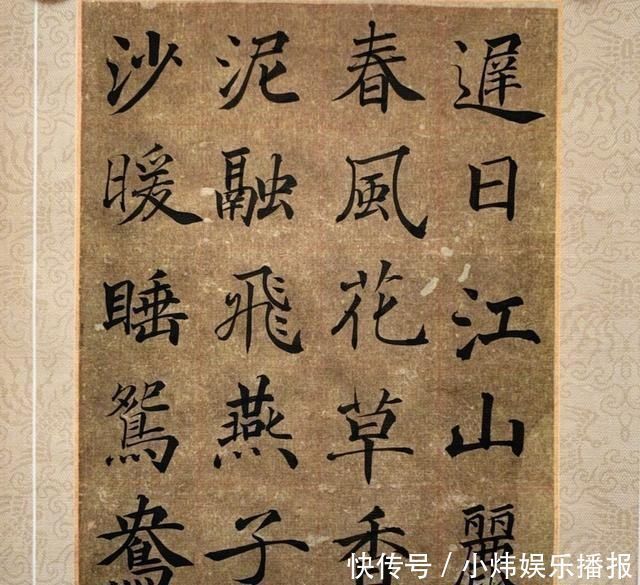 遲日江山麗
春風花草香
泥融飛燕子
沙暖睡鴛鴦
快传号/小炜娱乐播报